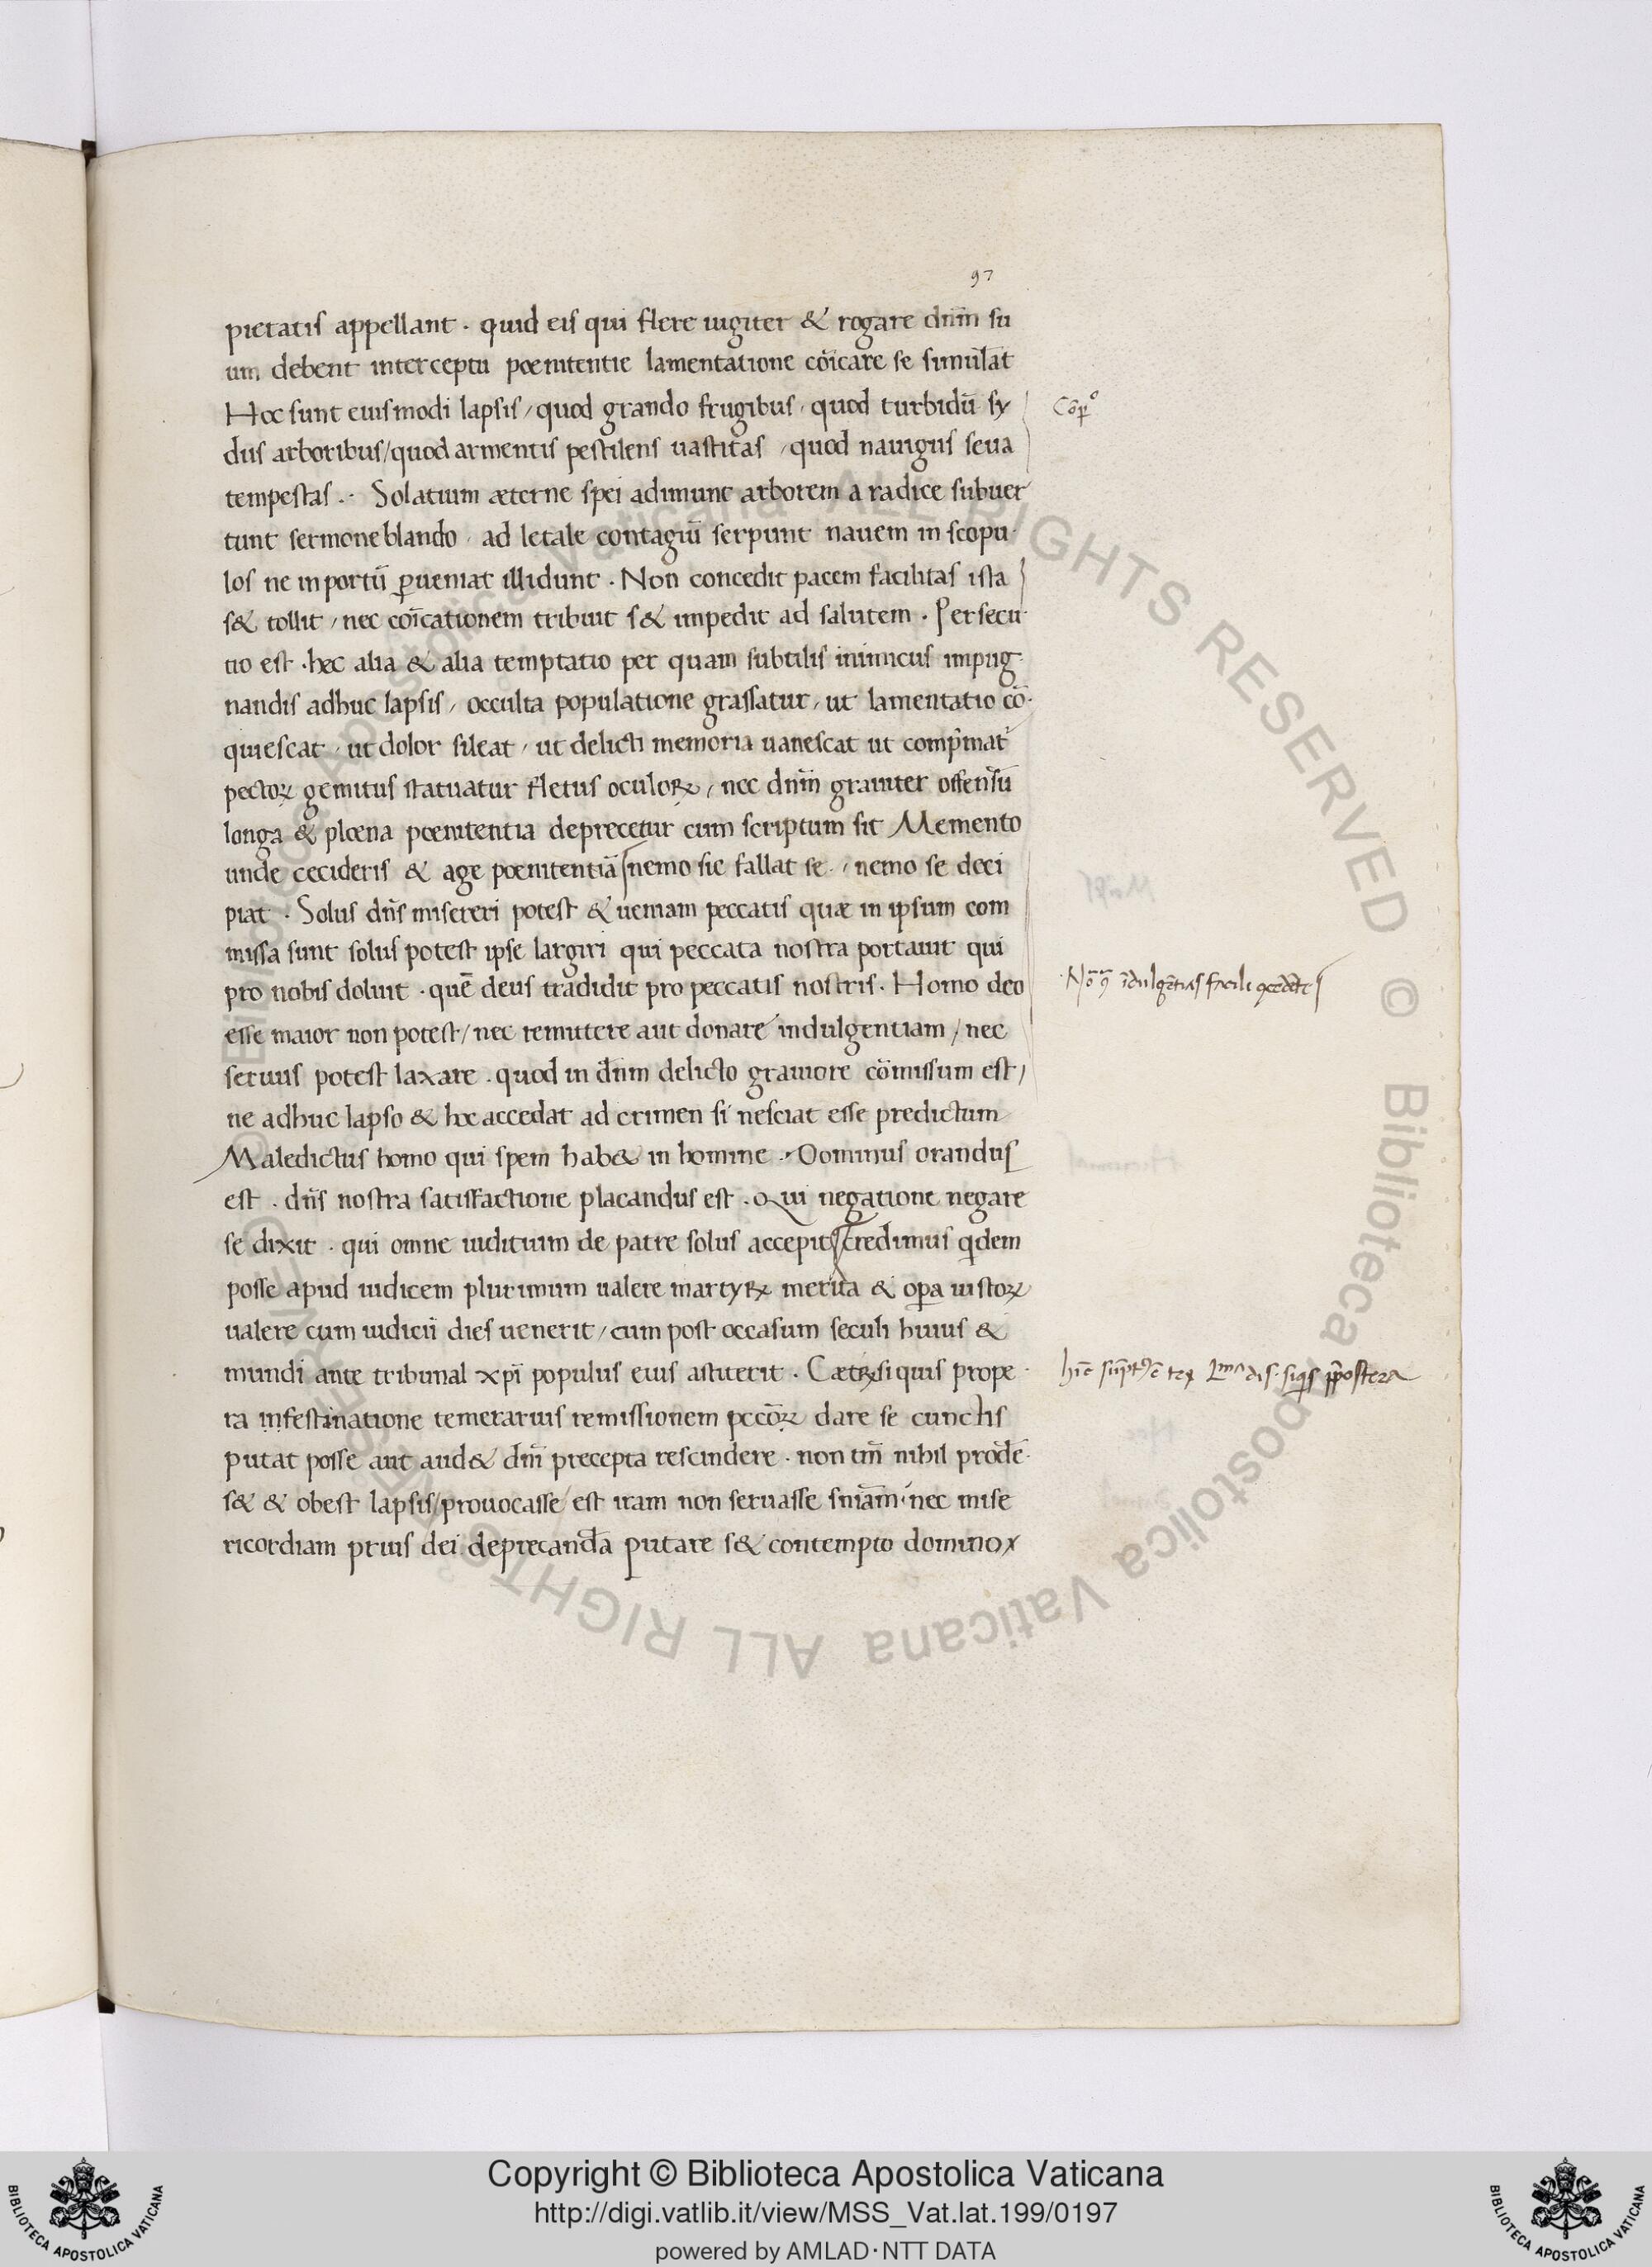 97
pietatis appellant · quid eis qui flere iugiter & rogare dnm̄ su
um debent interceptu poenitentie lamentatione cōicare se simulāt
Hoc sunt eiusmodi lapsis / quod grando frugibus · quod turbidū sy
Cōpͦ
dus arboribus / quod armentis pestilens uastitas / quod nauigiis seua
tempestas · Solatium æterne spei adimunt arborem a radice subuer
tunt sermone blando · ad letale contagiū serpunt nauem in scopu·
los ne in portū ꝑueniat illidunt · Non concedit pacem facilitas ista
s& tollit / nec cōicationem tribuit s& impedit ad salutem · Persecu·
tio est · hec alia & alia temptatio per quam subtilis inimicus impug·
nandis adhuc lapsis / occulta populatione grassatur / ut lamentatio cō·
quiescat / ut dolor sileat / ut delicti memoria uanescat ut comp̄mat᷑
pectoꝝ gemitus statuatur fletus oculoꝝ / nec dnm̄ grauiter offensū
longa & ploena poenitentia deprecetur cum scriptum sit Memento
unde cecideris & age poenitentiā nemo sie fallat se · / nemo se deci
piat · Solus dn̄s misereri potest & ueniam peccatis quæ in ipsum com
missa sunt solus potest ipse largiri qui peccata nostra portauit qui
pro nobis doluit · quē deus tradidit pro peccatis nostris · Homo deo
esse maior non potest / nec remittere aut donare indulgentiam / nec
seruus potest laxare · quod in dn̄m delicto grauiore cōmissum est /
ne adhuc lapso & hoc accedat ad crimen si nesciat esse predictum
Maledictus homo qui spem hab& in homine · Dominus orandus
est · dn̄s nostra satisfactione placandus est · Qui negatione negare
se dixit · qui omne iuditium de patre solus accepit credimus qͥdem
posse apud iudicem plurimum ualere martyꝝ merita & oꝑa iustoꝝ
ualere cum iudicii dies uenerit / cum post occasum seculi huius &
mundi ante tribunal xp̄i populus eius astiterit · Cætꝝ siquis prope·
ra infestinatione temerarius remissionem pccōꝝ dare se cunctis
putat posse aut aud& dn̄i precepta rescindere · non tm̄ nihil prodē·
s& & obest lapsis / prouocasse est iram non seruasse sn̄iam · nec mise
ricordiam prius dei deprecandā putare s& contempto domino x
Copyright © Biblioteca Apostolica Vaticana
http://digi.vatlib.it/view/MSS_Vat.lat.199/0197
powered by AMLAD·NTT DATA
© Biblioteca Apostolica Vaticana ALL RIGHTS RESERVED
© Biblioteca Apostolica Vaticana ALL RIGHTS RESERVED
BIBLIOTECA APOSTOLICA VATICANA
BIBLIOTECA APOSTOLICA VATICANA